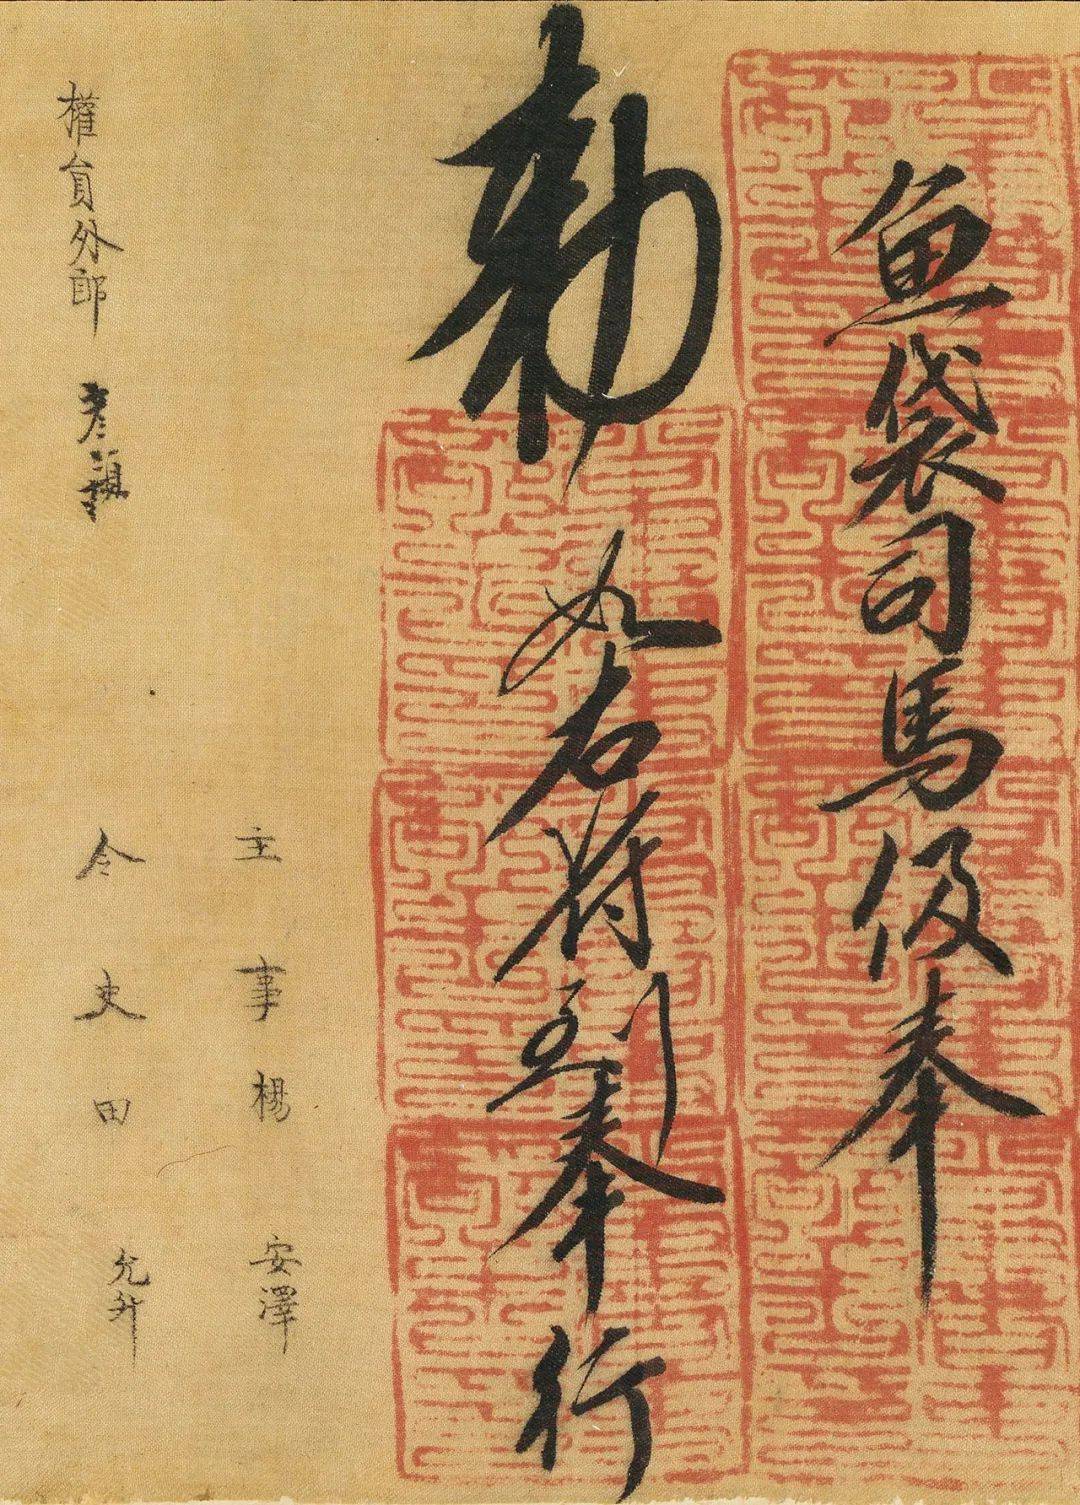 魚袋司馬伋奉
勑如右符到奉行
主事楊 安澤
權員外郎 彥
令史田 允升